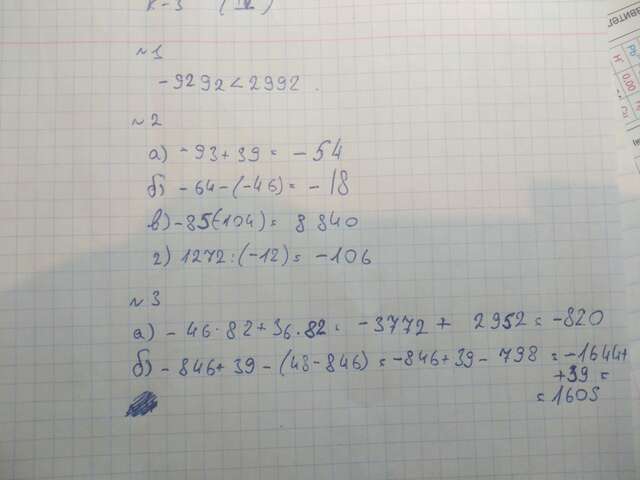 К-3 (IV)
№1
-9292 < 2992.
№2
а) -93+39= -54
б) -64-(-46)= -18
в) -85(-104)= 8 840
г) 1272:(-12)= -106
№3
а) -46·82+36·82= -3772+ 2952=-820
б) -846+39-(48-846)=-846+39-798=-1644+
+39=
=1605